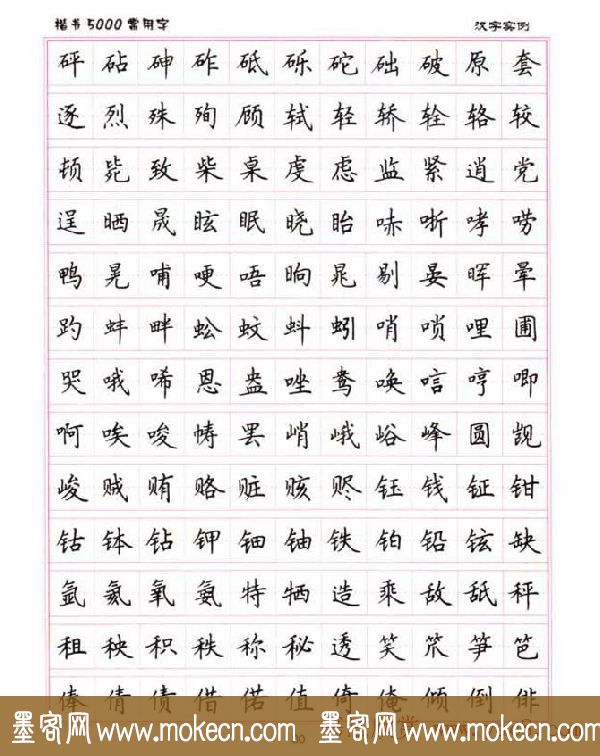 楷书5000常用字 汉字实例
砰砧砷砟砥砾砣础破原套
逐烈殊殉顾轼轻轿辁辂较
顿毙致柴桌虔虑监紧逍党
逞晒晟眩眠晓眙哧哳哮唠
鸭晃哺哽唔晌晁剔晏晖晕
趵蚌畔蚣蚊蚪蚓哨唢哩圃
哭哦唏恩盎唑鸯唤唁哼唧
啊唉唆帱罢峭峨峪峰圆觊
峻贼贿赂赃赅赆钰钱钲钳
钴钵钻钾钿铀铁铂铅铉缺
氩氦氧氨特牺造乘敌舐秤
租秧积秩称秘透笑笊笋笆
俸倩债借偌值倚俺倾倒俳
墨客网 www.mokecn.com 墨客网 www.mokecn.com